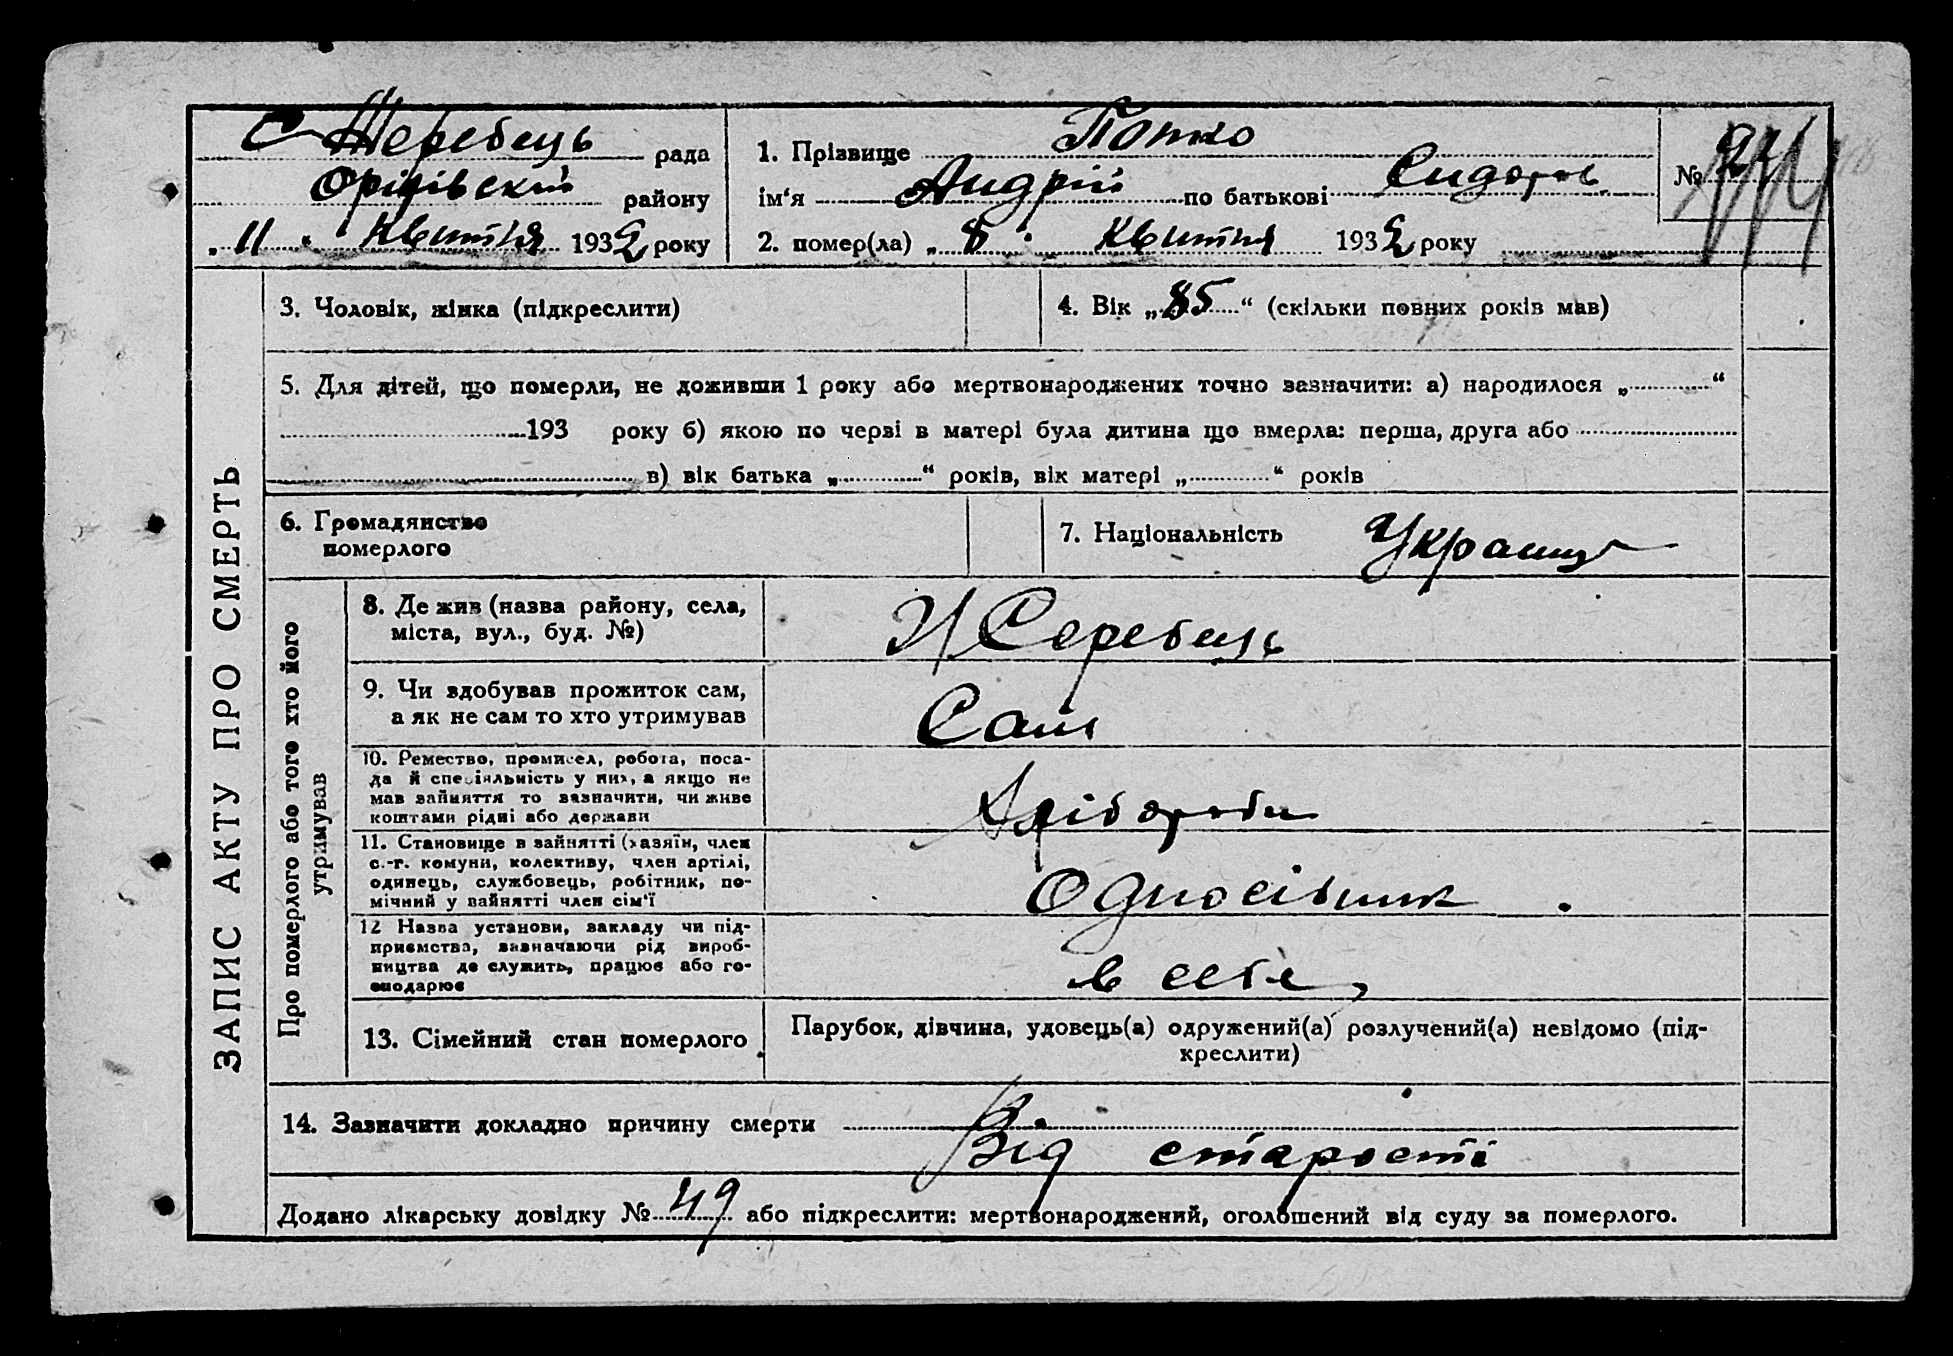 С Жеребець рада
Оріхівский району
„ 11 “ Квитня 1932 року
1. Прізвище Попко
ім‘я Андрій по батькові Сидоров.
2. помер(ла) „ 8 “ Квитня 1932 року
№
3. Чоловік, жінка (підкреслити)
4. Вік „ 85 “ (скільки повних років мав)
5. Для дітей, що померли, не доживши 1 року або мертвонароджених точно зазначити: а) народилося „ “
193 року б) якою по черзі в матері була дитина що вмерла: перша, друга або
в) вік батька „ “ років, вік матері „ “ років
6. Громадянство
померлого
7. Національність Украинц
ЗАПИС АКТУ ПРО СМЕРТЬ
Про померлого або того хто його
утримував
8. Де жив (назва району, села,
міста, вул., буд. №)
Серебець
9. Чи здобував прожиток сам,
а як не сам то хто утримував
Сам
10. Ремество, промисел, робота, поса-
да й спеціяльність у них, а якщо не
мав зайняття то зазначити, чи живе
коштами рідні або держави
Хліборобы
11. Становище в зайнятті (хазяїн, член
с.-г. комуни, колективу, член артілі,
одинець, службовець, робітник, по-
мічний у зайнятті член сім‘ї
Односібник
12 Назва установи, закладу чи під-
приємства, зазначаючи рід вироб-
ництва де служить, працює або го-
сподарює
в себе,
13. Сімейний стан померлого
Парубок, дівчина, удовець(а) одружений(а) розлучений(а) невідомо (під-
креслити)
14. Зазначити докладно причину смерти
Від старости
Додано лікарську довідку № 49 або підкреслити: мертвонароджений, оголошений від суду за померлого.